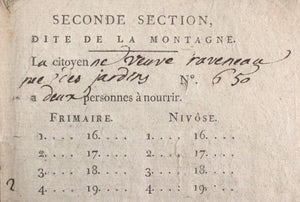 SECONDE SECTION,
DITE DE LA MONTAGNE.
La citoyenne veuve raveneau
rue des jardins N°. 650
a deux personnes à nourrir.
FRIMAIRE. NIVÔSE.
1.... 16.... 1.... 16....
2.... 17.... 2.... 17....
3.... 18.... 3.... 18....
4.... 19.... 4.... 19....